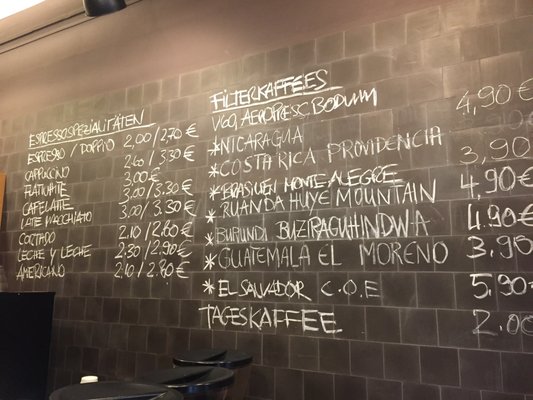 ESPRESSOSPEZIALITÄTEN
ESPRESSO / DOPPIO 2,00 / 2,70 €
CAPPUCCINO 2,60 / 3.30 €
FLATWHITE 3,00 €
CAFE LATTE 3,00 / 3.30 €
LATTE MACCHIATO 3,00 / 3.30 €
CORTADO 2,10 / 2.60 €
LECHE Y LECHE 2.30 / 2.90 €
AMERICANO 2,10 / 2.80 €
FILTERKAFFEES
V60, AEROPRESS, BODUM
*NICARAGUA 4,90 €
*COSTA RICA PROVIDENCIA 3,90
*BRASILIEN MONTE ALEGRE 4,90 €
*RUANDA HUYE MOUNTAIN 4.90 €
*BURUNDI BUZIRAGUHINDWA
*GUATEMALA EL MORENO 3,90
*EL SALVADOR C.O.E 5,90
TAGESKAFFEE 2.00